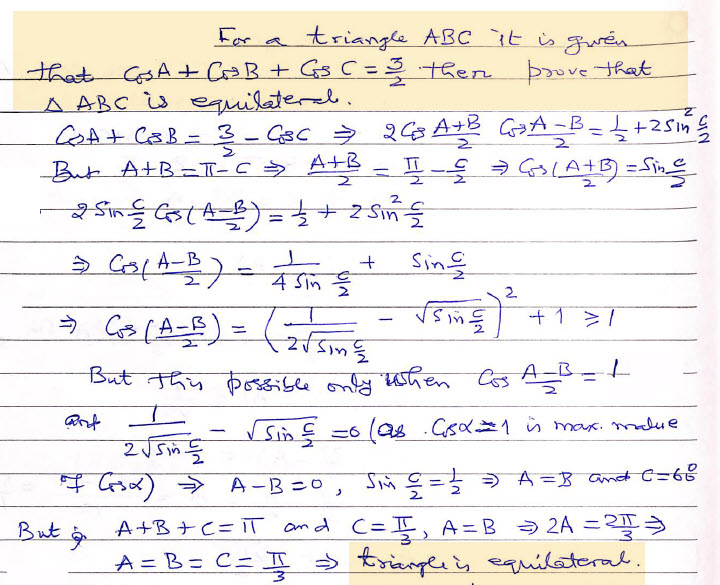 For a triangle ABC it is given
that CosA + CosB + Cos C = 3/2 then prove that
Δ ABC is equilateral.
CosA + CosB = 3/2 - CosC ⇒ 2 Cos (A+B)/2 Cos (A-B)/2 = 1/2 + 2 Sin² C/2
But A+B = π-C ⇒ (A+B)/2 = π/2 - C/2 ⇒ Cos((A+B)/2) = Sin C/2
2 Sin C/2 Cos((A-B)/2) = 1/2 + 2 Sin² C/2
⇒ Cos((A-B)/2) = 1/(4 Sin C/2) + Sin C/2
⇒ Cos((A-B)/2) = (1/(2√Sin C/2) - √Sin C/2)² + 1 ≥ 1
But this possible only when Cos (A-B)/2 = 1
and 1/(2√Sin C/2) - √Sin C/2 = 0 (as Cosα = 1 is max. value
of Cosα) ⇒ A-B = 0, Sin C/2 = 1/2 ⇒ A = B and C = 60°
But A+B+C = π and C = π/3, A = B ⇒ 2A = 2π/3 ⇒
A = B = C = π/3 ⇒ triangle is equilateral.